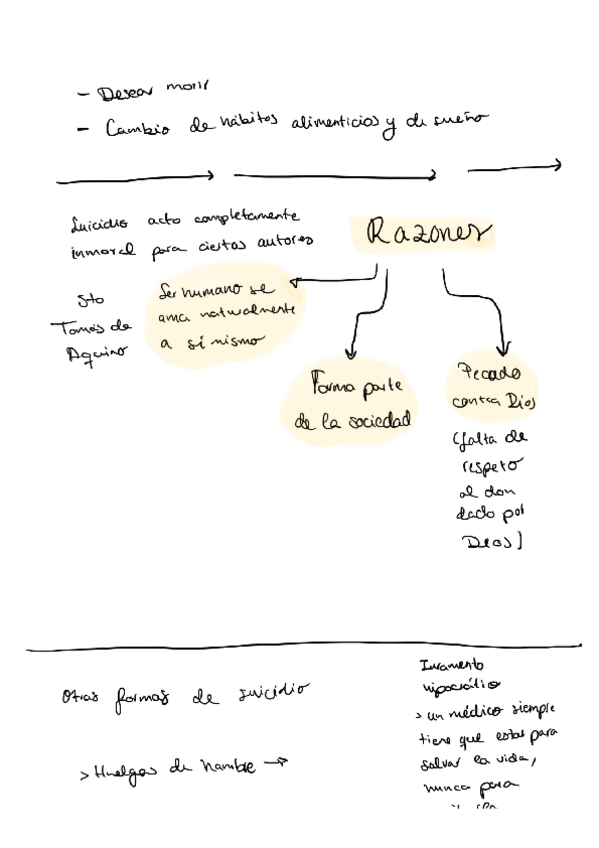 - Desear morir
- Cambio de hábitos alimenticios y de sueño
Suicidio acto completamente
inmoral para ciertos autores
Razones
Sto
Tomás de
Aquino
Ser humano se
ama naturalmente
a sí mismo
Forma parte
de la sociedad
Pecado
contra Dios
(falta de
respeto
al don
dado por
Dios)
Otras formas de suicidio
> Huelgas de hambre →
Juramento
hipocrático
> un médico siempre
tiene que estar para
salvar la vida,
nunca para